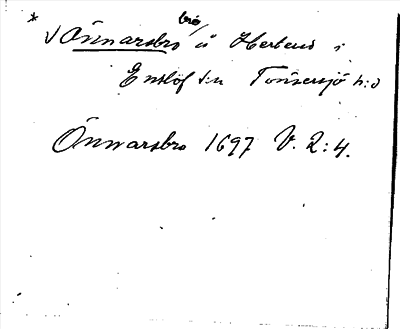 * √ Önnarsbro bro, å Herberö i
Enslöf s:n Tönnersjö h:d
Önnarsbro 1697 V. 2:4.